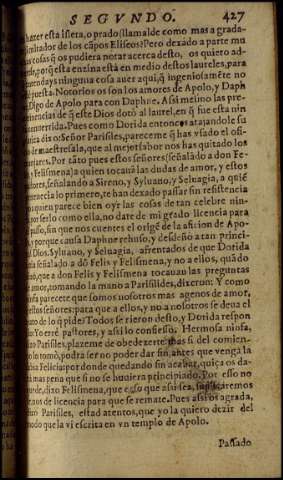 SEGVNDO. 427
hazer esta isleta, o prado (llamalde como mas a grada-
cultador de los cãpos Eliseos? Pero dexado a parte mu
as cosas q̃ os pudiera notar acerca desto, os quiero ad-
porq̃ esta enzina està en medio destos laureles, para
days ninguna cosa auer aqui, q̃ ingeniosamẽte no
puesta. Notorios os son los amores de Apolo, y Daph
Digo de Apolo para con Daphne. Assi mesmo las pre-
minencias de q̃ este Dios dotò al laurel, en q̃ fue esta nin
conuertida. Pues como Dorida entonces atajandole su
dixo Señor Parisiles, pareceme q̃ has vsado el ofi-
de maestresala, que al mejor sabor nos has quitado los
Por tãto pues estos señores (señalãdo a don Fe-
y Felismena) a quien tocauã las dudas de amor, y estos
señalando a Sireno, y Syluano, y Seluagia, a quiẽ
lo primero, te han dexado passar sin resistencia
quien parece bien oyr las cosas de tan celebre nin-
por serlo como ella, no date de mi grado licencia para
sin que nos cuentes el origẽ de la aficion de Apo-
y porque causa Daphne rehusò, y desdeñò a tan princi-
Dios. Syluano, y Seluagia, afrentados de que Dorida
señalado a dõ Felis y Felismena, y no a ellos, quãdo
que a don Felis y Felismena tocauan las preguntas
de amor, tomando la mano a Parisilides, dixeron: Y como
parecete que somos nosotros mas agenos de amor,
estos señores: para que a ellos, y no a nosotros se deua el
de lo q̃ pides? Todos se rieron desto, y Dorida respon
Yo erré pastores, y assi lo confiesso. Hermosa ninfa,
Parisiles, plazeme de obedezerte: mas si del comien-
lo tomò, podra ser no poder dar fin, antes que venga la
Felicia: por donde quedando sin acabar, quiça os da-
mas pena que si no se huuiera principiado. Por esso no
de, dixo Felismena, que esso que assi sea,
os de licencia para que se remate. Pues assi os agrada,
Parisiles, estad atentos, que yo la quiero dezir del
modo que la vi escrita en vn templo de Apolo.
Passado